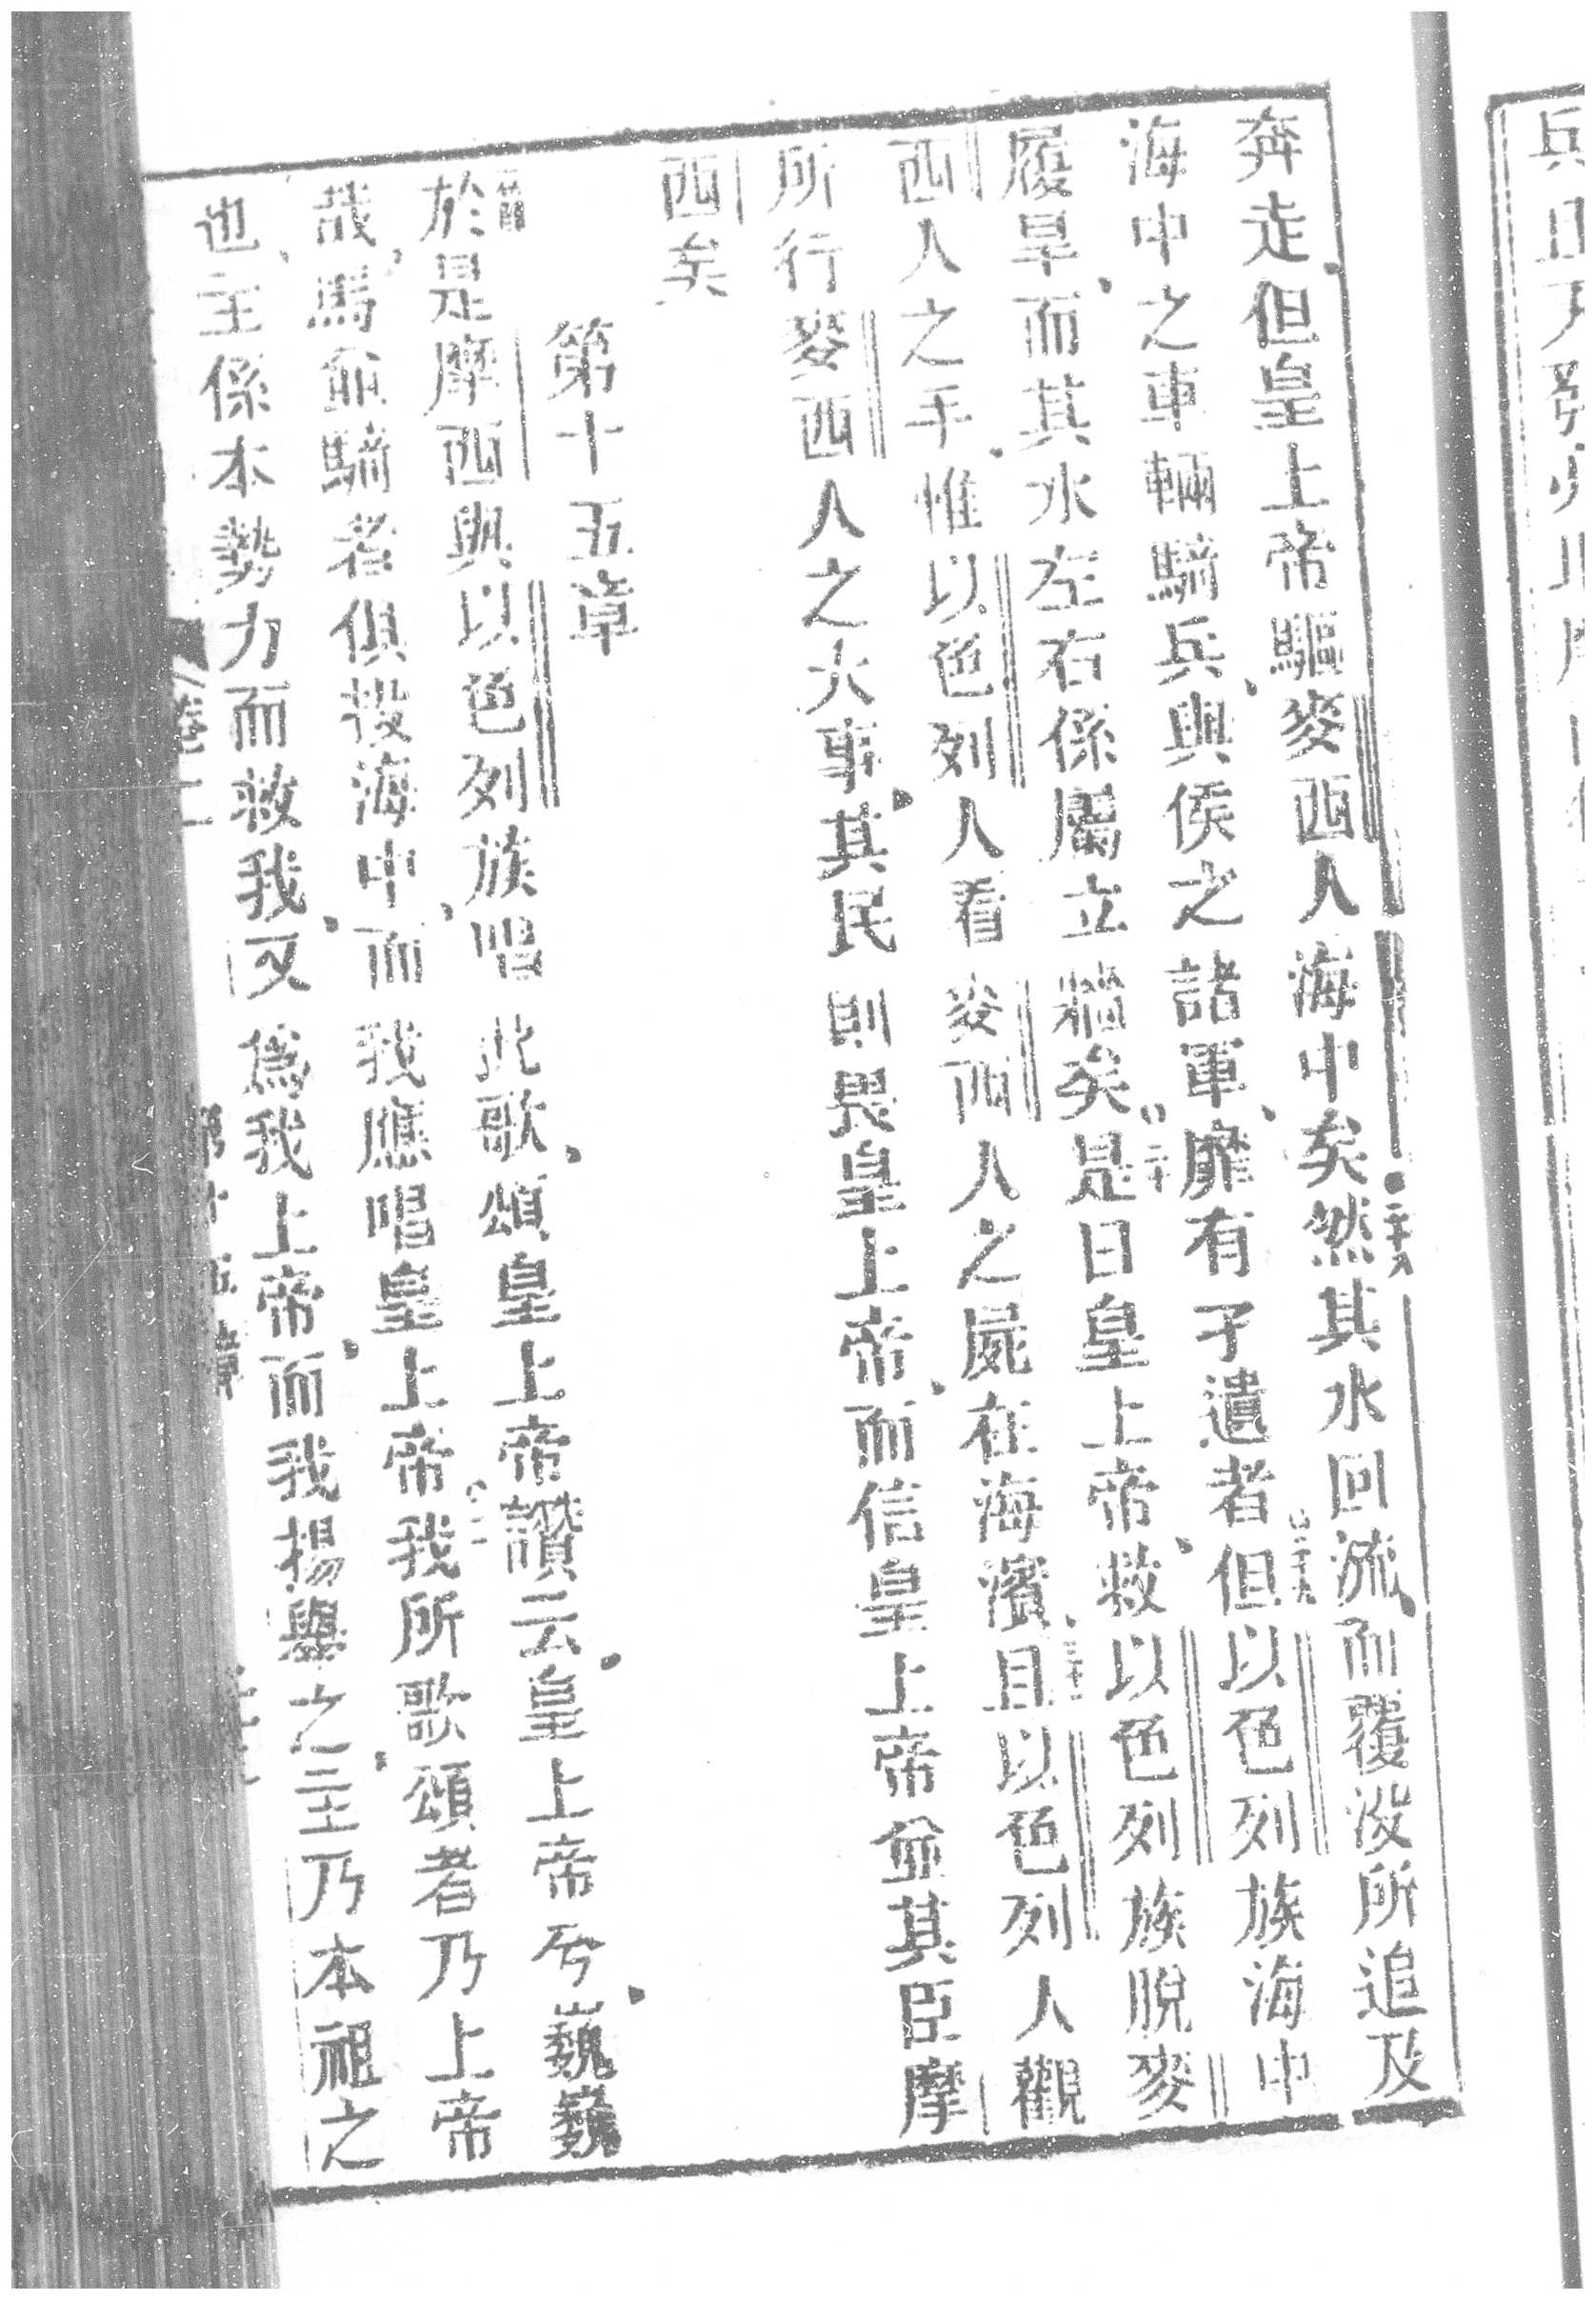 奔走但皇上帝驅麥西人海中矣二十八然其水回流而覆沒所追及
海中之車輛騎兵與侯之諸軍靡有孑遺者二十九但以色列族海中
履旱而其水左右係屬立牆矣三十是日皇上帝救以色列族脫麥
西人之手惟以色列人看麥西人之屍在海濱三十一且以色列人觀
所行麥西人之大事其民則畏皇上帝而信皇上帝並其臣摩
西矣
第十五章
於是摩西與以色列族唱此歌頌皇上帝讚云皇上帝兮巍巍
哉馬並騎者俱投海中而我應唱皇上帝二我所歌頌者乃上帝
也主係本勢力而救我又為我上帝而我揚舉之主乃本祖之
卷二
第十五章